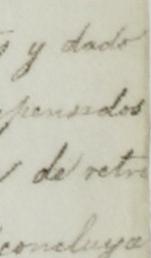 y dado
pensados
de retri
concluya